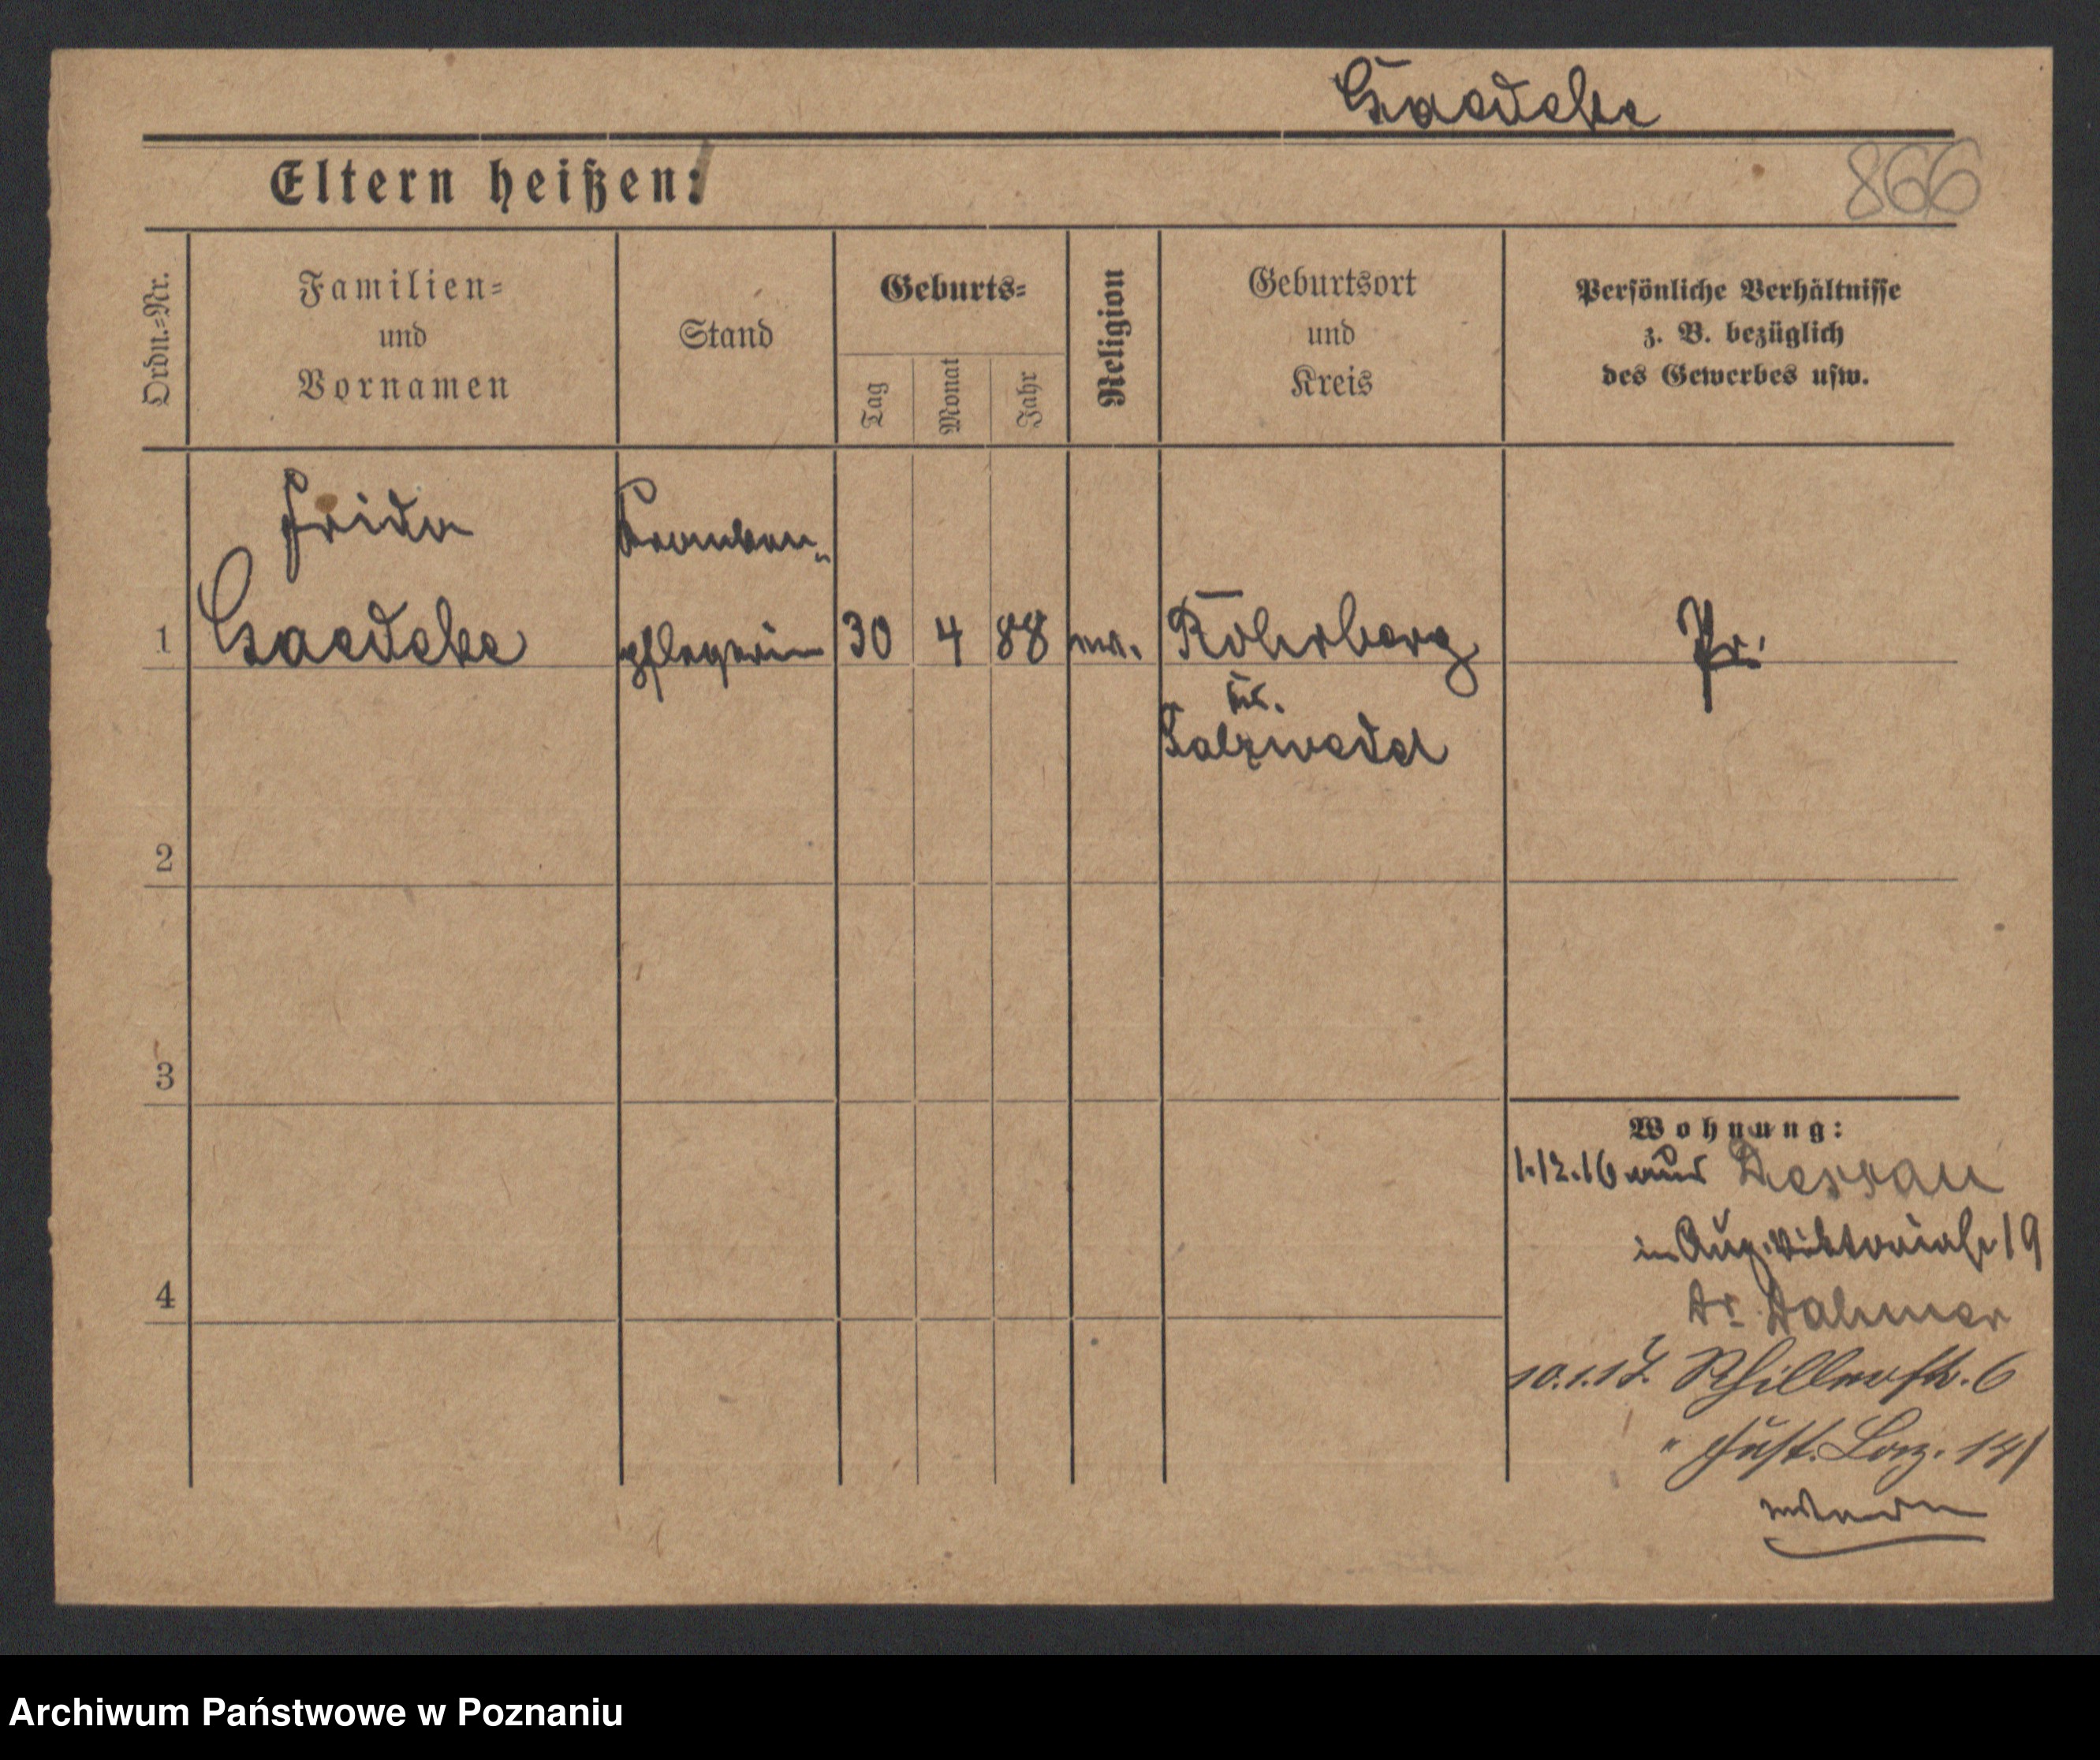 Gaedeke
Eltern heißen:
866
Ordn.-Nr.
Familien-
und
Vornamen
Stand
Geburts-
Tag
Monat
Jahr
Religion
Geburtsort
und
Kreis
Persönliche Verhältnisse
z. B. bezüglich
des Gewerbes usw.
1
Frida
Gaedeke
Kranken-
pflegerin
30
4
88
Röhrberg
Kr.
Salzwedel
Pr.
2
3
4
Wohnung:
1.12.16 aus Dessau
in Aug. Viktoriastr 19
Dr. Dahmer
10.1.17. Schillerstr. 6
" Laz.
Archiwum Państwowe w Poznaniu